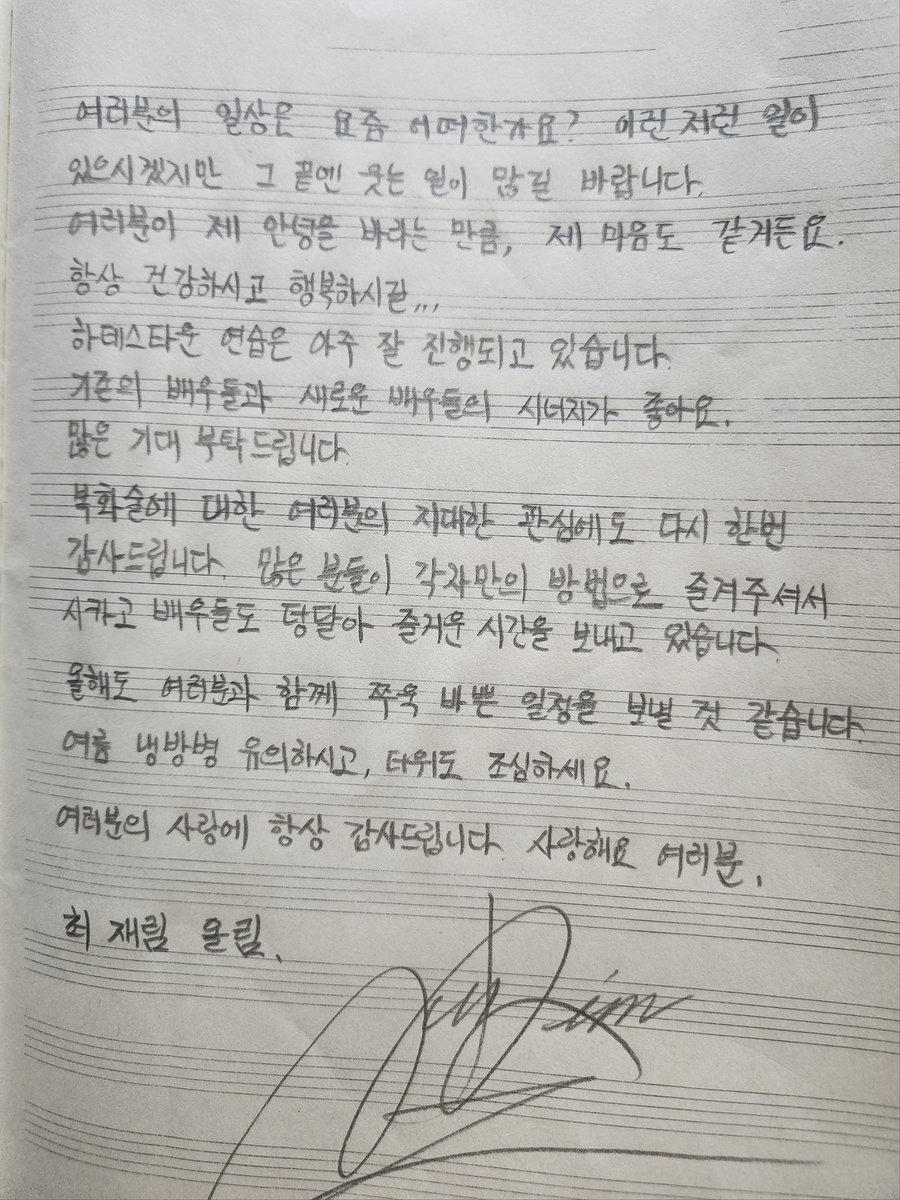 여러분의 일상은 요즘 어떠한가요? 이런저런 일이
있으시겠지만 그 끝엔 웃는 일이 많길 바랍니다.
여러분이 제 안녕을 바라는 만큼, 제 마음도 같거든요.
항상 건강하시고 행복하시길...
하데스타운 연습은 아주 잘 진행되고 있습니다.
기존의 배우들과 새로운 배우들의 시너지가 좋아요.
많은 기대 부탁드립니다.
복화술에 대한 여러분의 지대한 관심에도 다시 한번
감사드립니다. 많은 분들이 각자만의 방법으로 즐겨주셔서
시카고 배우들도 덩달아 즐거운 시간을 보내고 있습니다.
올해도 여러분과 함께 쭈욱 바쁜 일정을 보낼 것 같습니다.
여름 냉방병 유의하시고, 더위도 조심하세요.
여러분의 사랑에 항상 감사드립니다. 사랑해요 여러분.
최재림 올림.